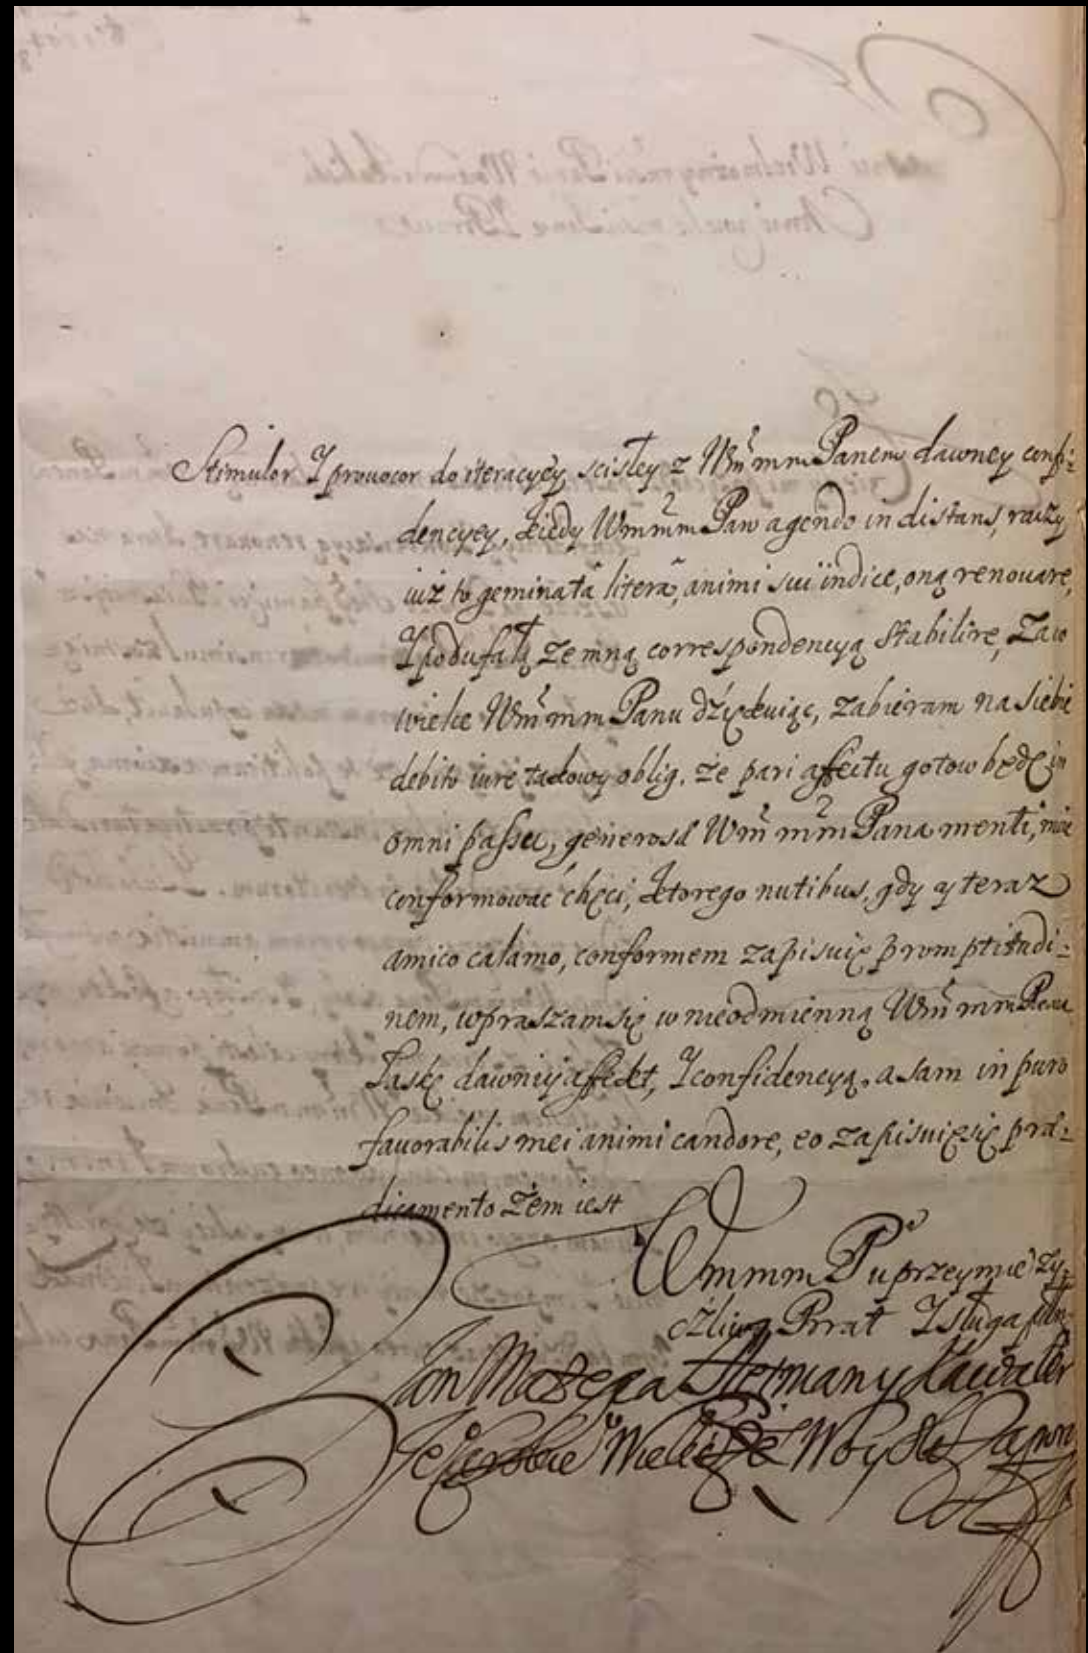 Stimulor I prouocor do iteracyey scisłey z Wm̃ mm Panem dawney confi:
dencyey, kiedy Wm mm Pan agendo in distans, raczy,
iuż to geminatâ literâ, animi sui indice, oną renouare,
I podufałą ze mną correspondencyą stabilire, za co
wielce Wm̃ mm Panu dźiękuiąc, zabieram na siebie
debito iure takowy oblig. że pari affectu gotow będę in
omni passu, generosæ Wm̃ mm̃ Pana menti,
conformowac chęci, ktorego nutibus, gdy y teraz
amico calamo, conformem zapisuię promptitudi:
nem, wpraszam się w nieodmienną Wm̃ mm Pana
Łaskę dawniy affekt, I confidencyą, a sam in puro
fauorabilis mei animi candore, eo zapisuię się præ:
dicamento żem iest
Wmmm P uprzeymie zy:
czliwy Brat I sługa
Jan Mazepa Hetman y Kawaler
Je Wielić Woysk Zapor